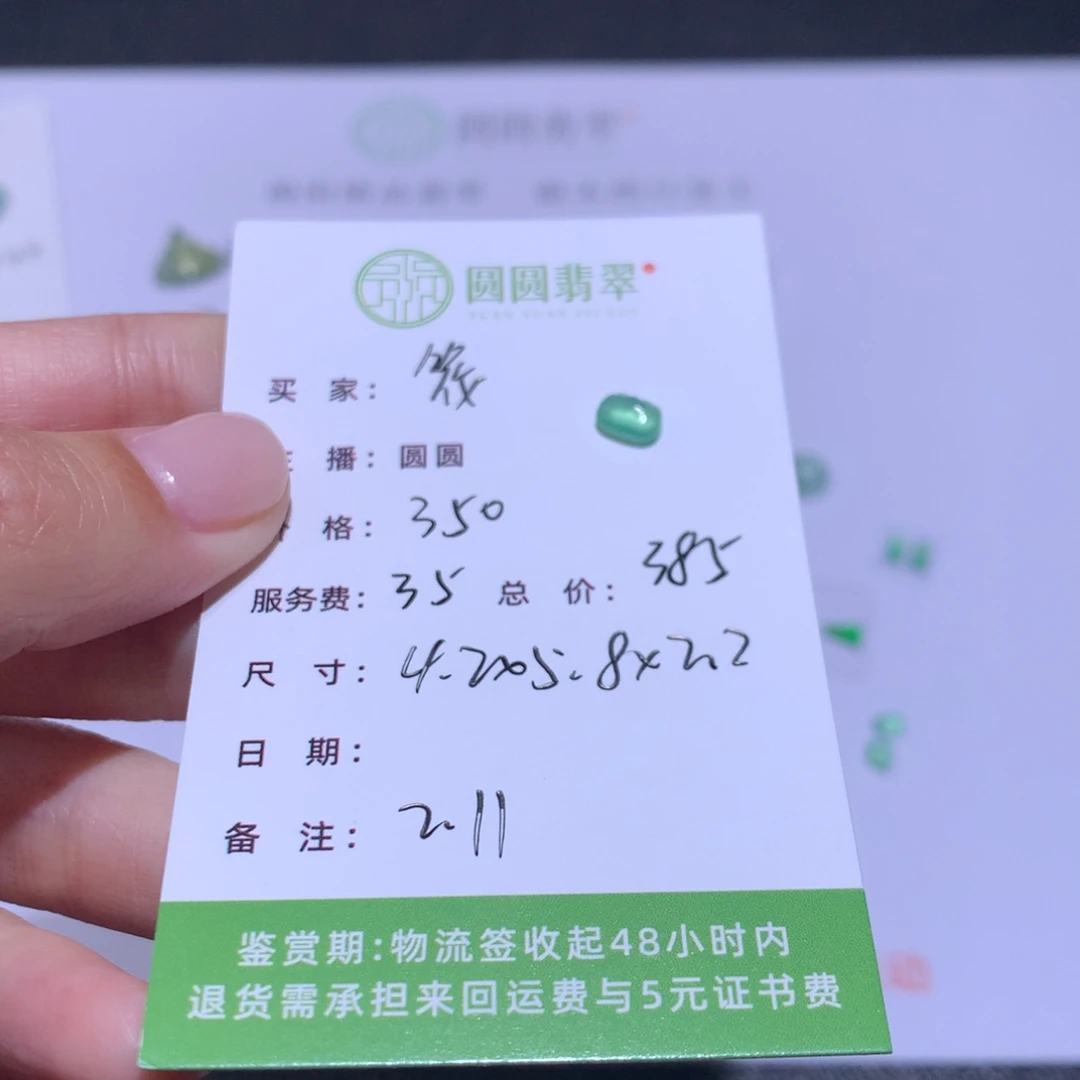 圆圆翡翠
YUAN YUAN FEI CUI
买 家：
播：圆圆
格：350
服务费：35 总 价：385
尺 寸：4.2x5.8x2.2
日 期：
备 注：2.11
鉴赏期:物流签收起48小时内
退货需承担来回运费与5元证书费